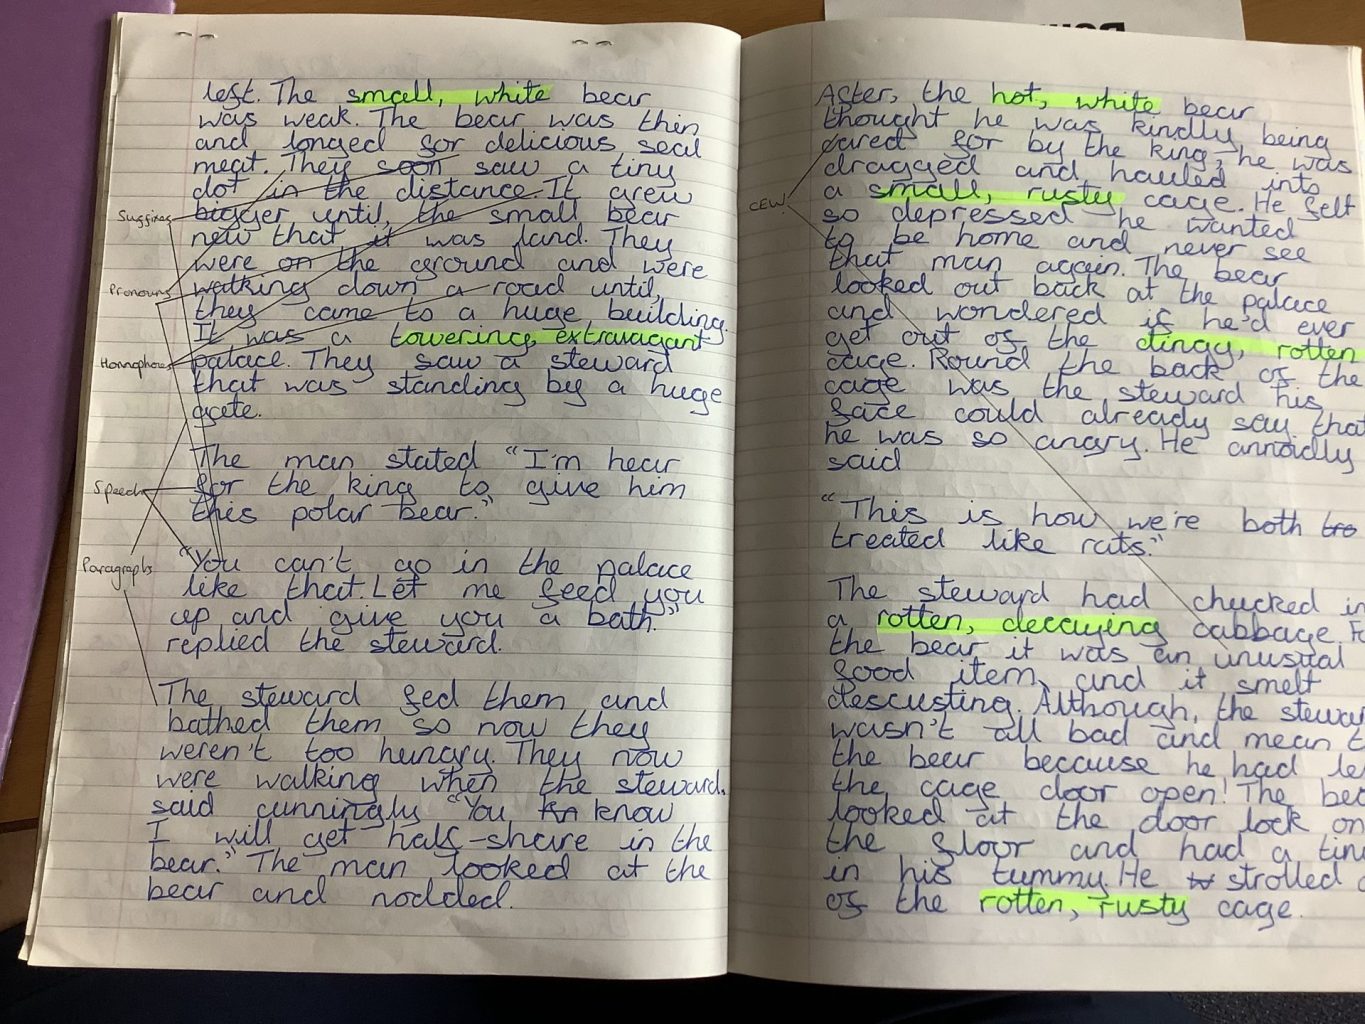 left. The small, white bear
was weak. The bear was thin
and longed for delicious seal
meat. They soon saw a tiny
dot in the distance. It grew
Suffixes
bigger until, the small bear
new that it was land. They
were on the ground and were
Pronouns
walking down a road until,
they came to a huge building.
It was a towering, extravagant
Homophones
palace. They saw a steward
that was standing by a huge
gate.
The man stated "I'm hear
Speech
for the king to give him
this polar bear."
"You can't go in the palace
Paragraphs
like that. Let me feed you
up and give you a bath."
replied the steward.
The steward fed them and
bathed them so now they
weren't too hungry. They now
were walking when the steward.
said cunningly "You know
I will get half-share in the
bear." The man looked at the
bear and nodded.
After, the hot, white bear
thought he was kindly being
cared for by the king, he was
dragged and hauled into
a small, rusty cage. He felt
CEW!
so depressed he wanted
to be home and never see
that man again. The bear
looked out back at the palace
and wondered if he'd ever
get out of the dingy, rotten
cage. Round the back of the
cage was the steward his
face could already say that
he was so angry. He annoidly
said
"This is how we're both
treated like rats."
The steward had chucked in
a rotten, decaying cabbage.
the bear it was an unusual
food item, and it smelt
descusting. Although, the
wasn't all bad and mean
the bear because he had
the cage door open! The
looked at the door lock on
the floor and had a
in his tummy. He strolled
of the rotten, rusty cage.